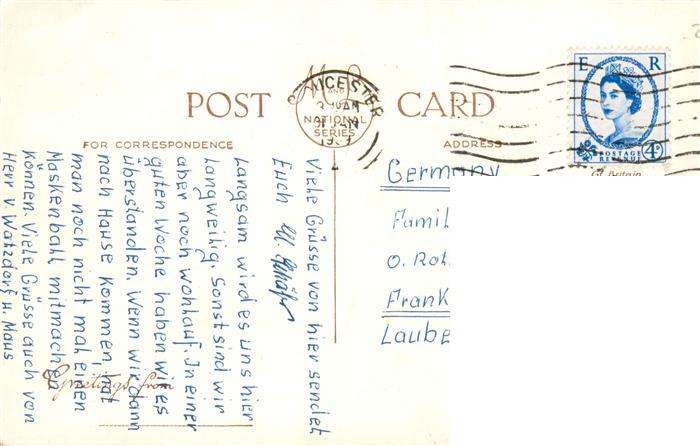 POST CARD
M AND L
NATIONAL
SERIES
FOR CORRESPONDENCE
ADDRESS
LEICESTER
JAN
E R
POSTAGE
REVENUE
4D
Germany
Famil
O. Rot
Frank
Laube
Viele Grüsse von hier sendet
Euch
Langsam wird es uns hier
langweilig. Sonst sind wir
aber noch wohlauf. In einer
guten Woche haben wir es
überstanden. Wenn wir dann
nach Hause kommen, hat
man noch nicht mal einen
Maskenball mitmachen
können. Viele Grüsse auch von
Herr v. Watzdorf u. Maus
Greetings from
Gt. Britain